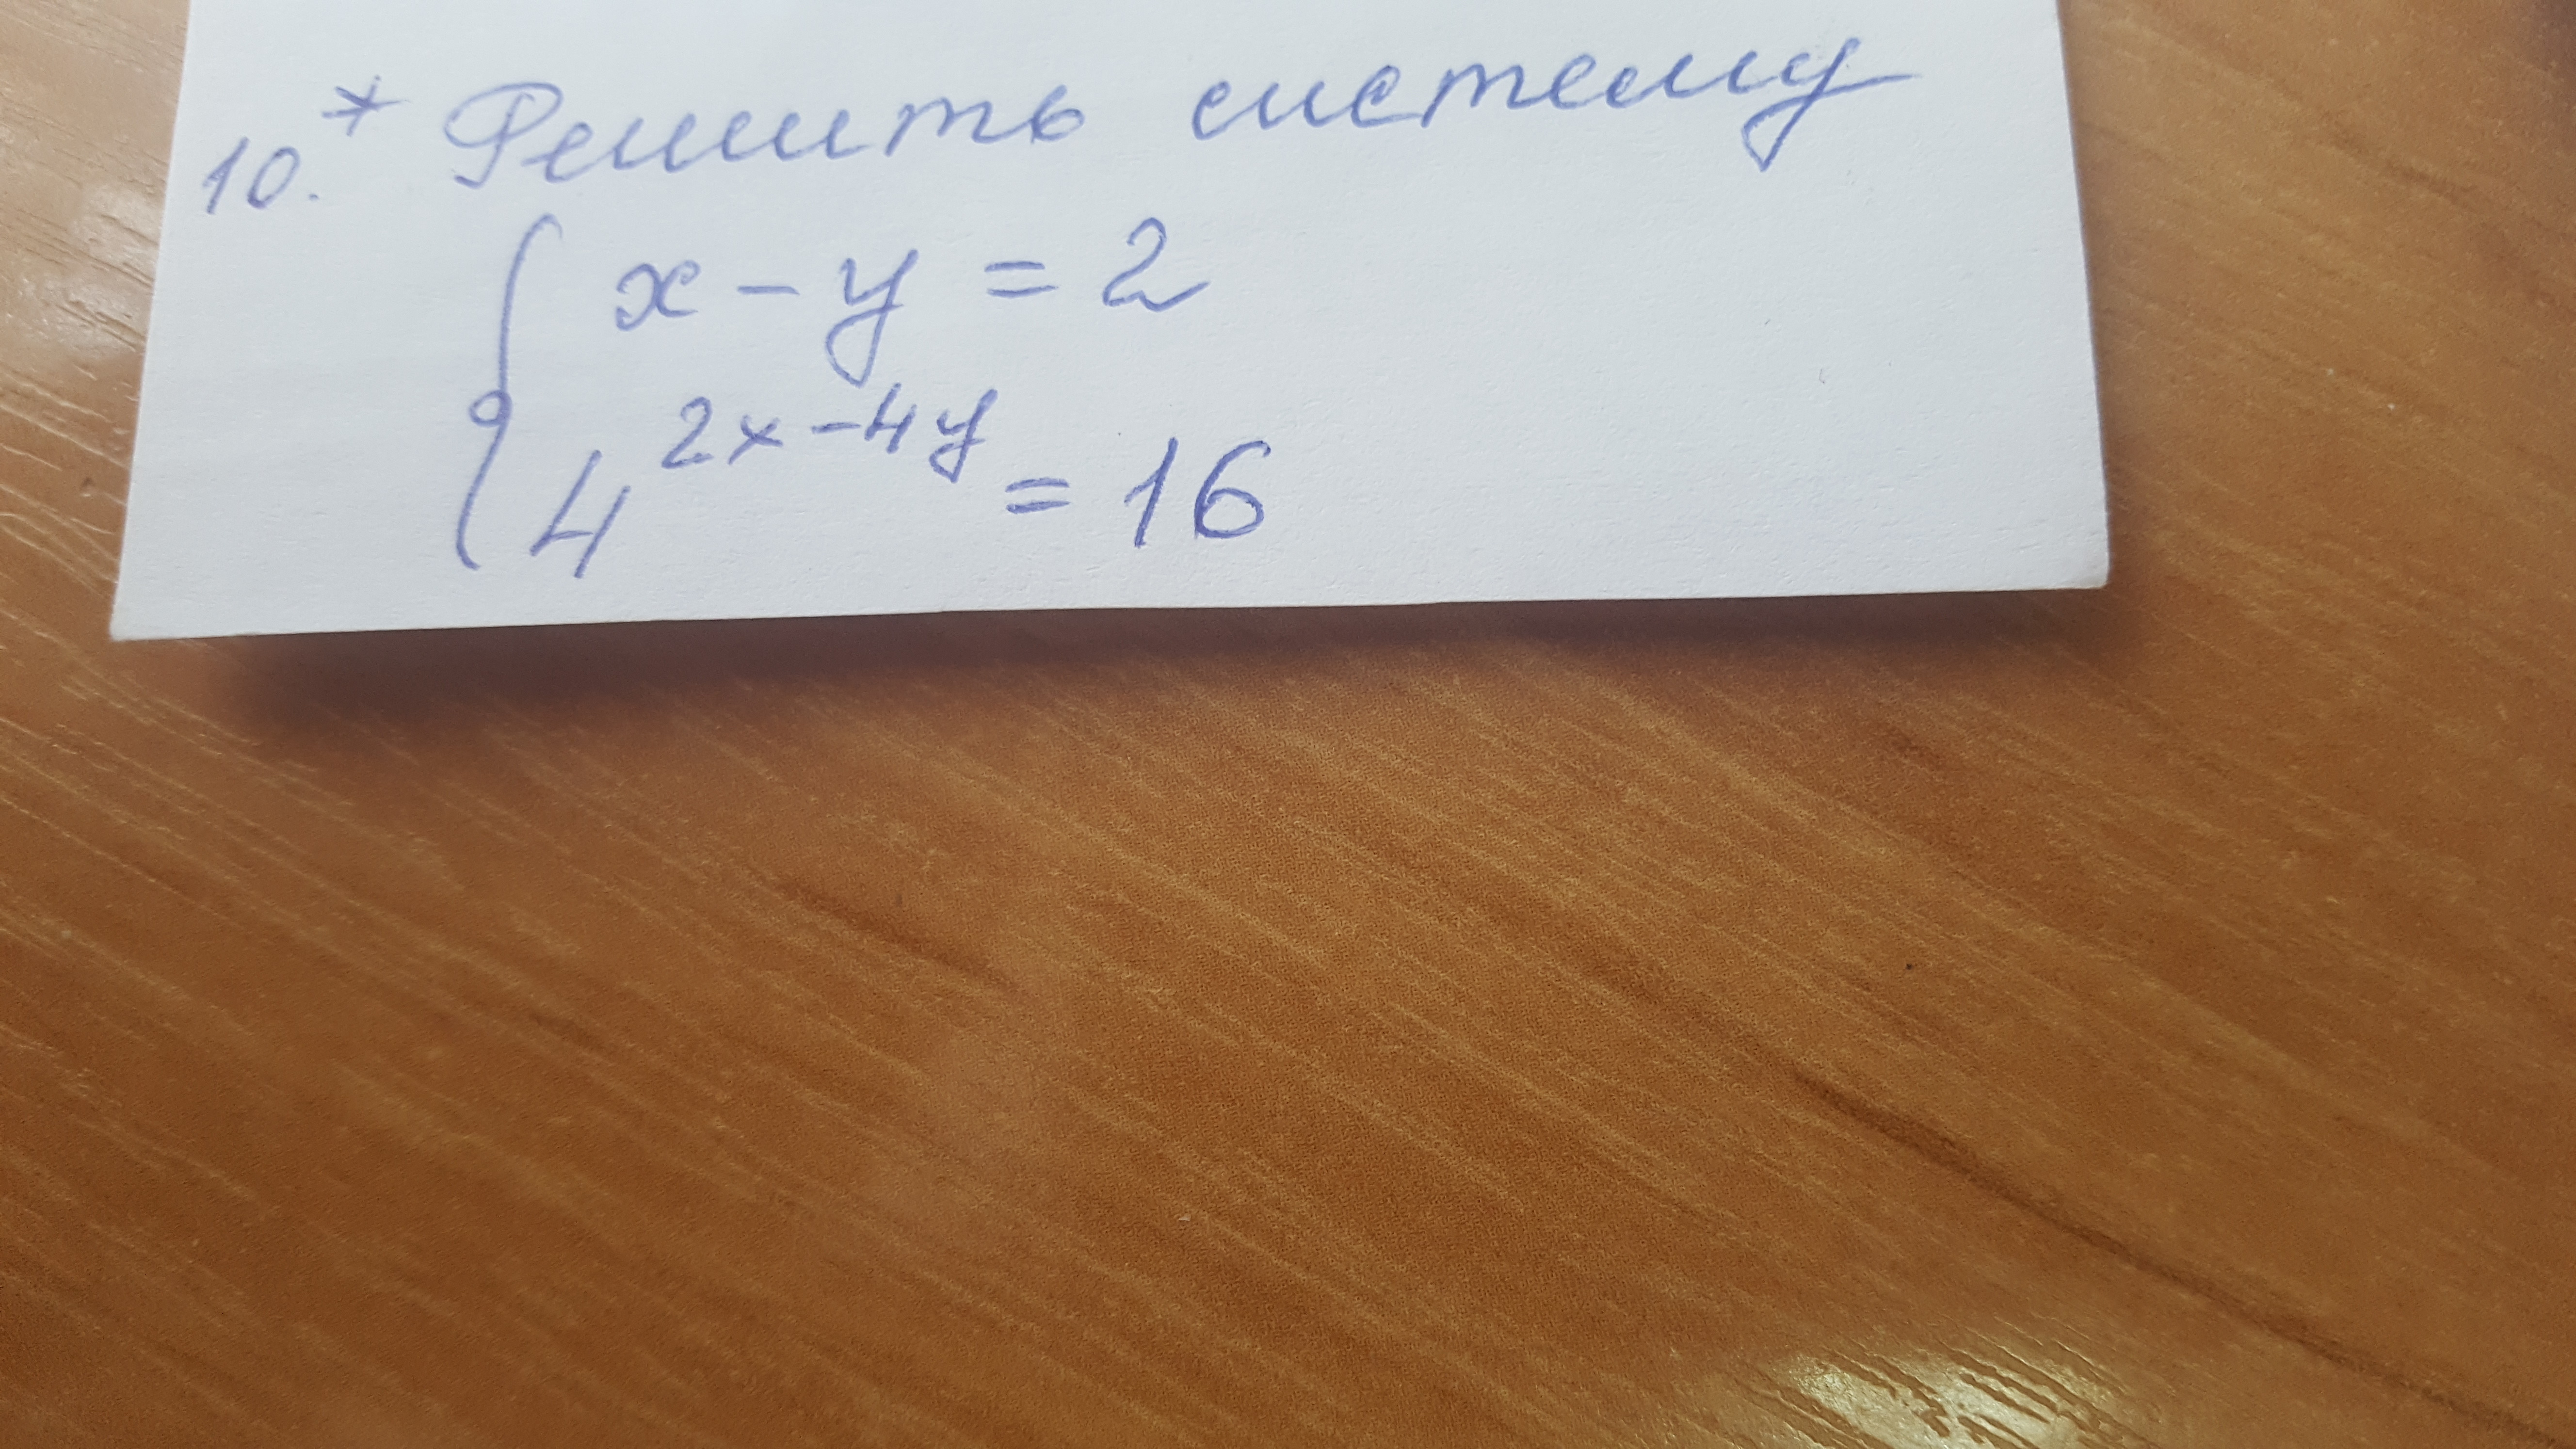 10.* Решить систему
x - y = 2
4^{2x-4y} = 16